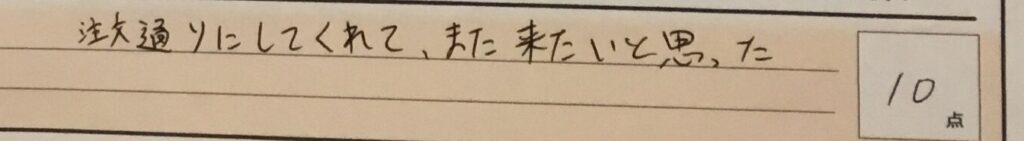 注文通りにしてくれて、また来たいと思った
10
点